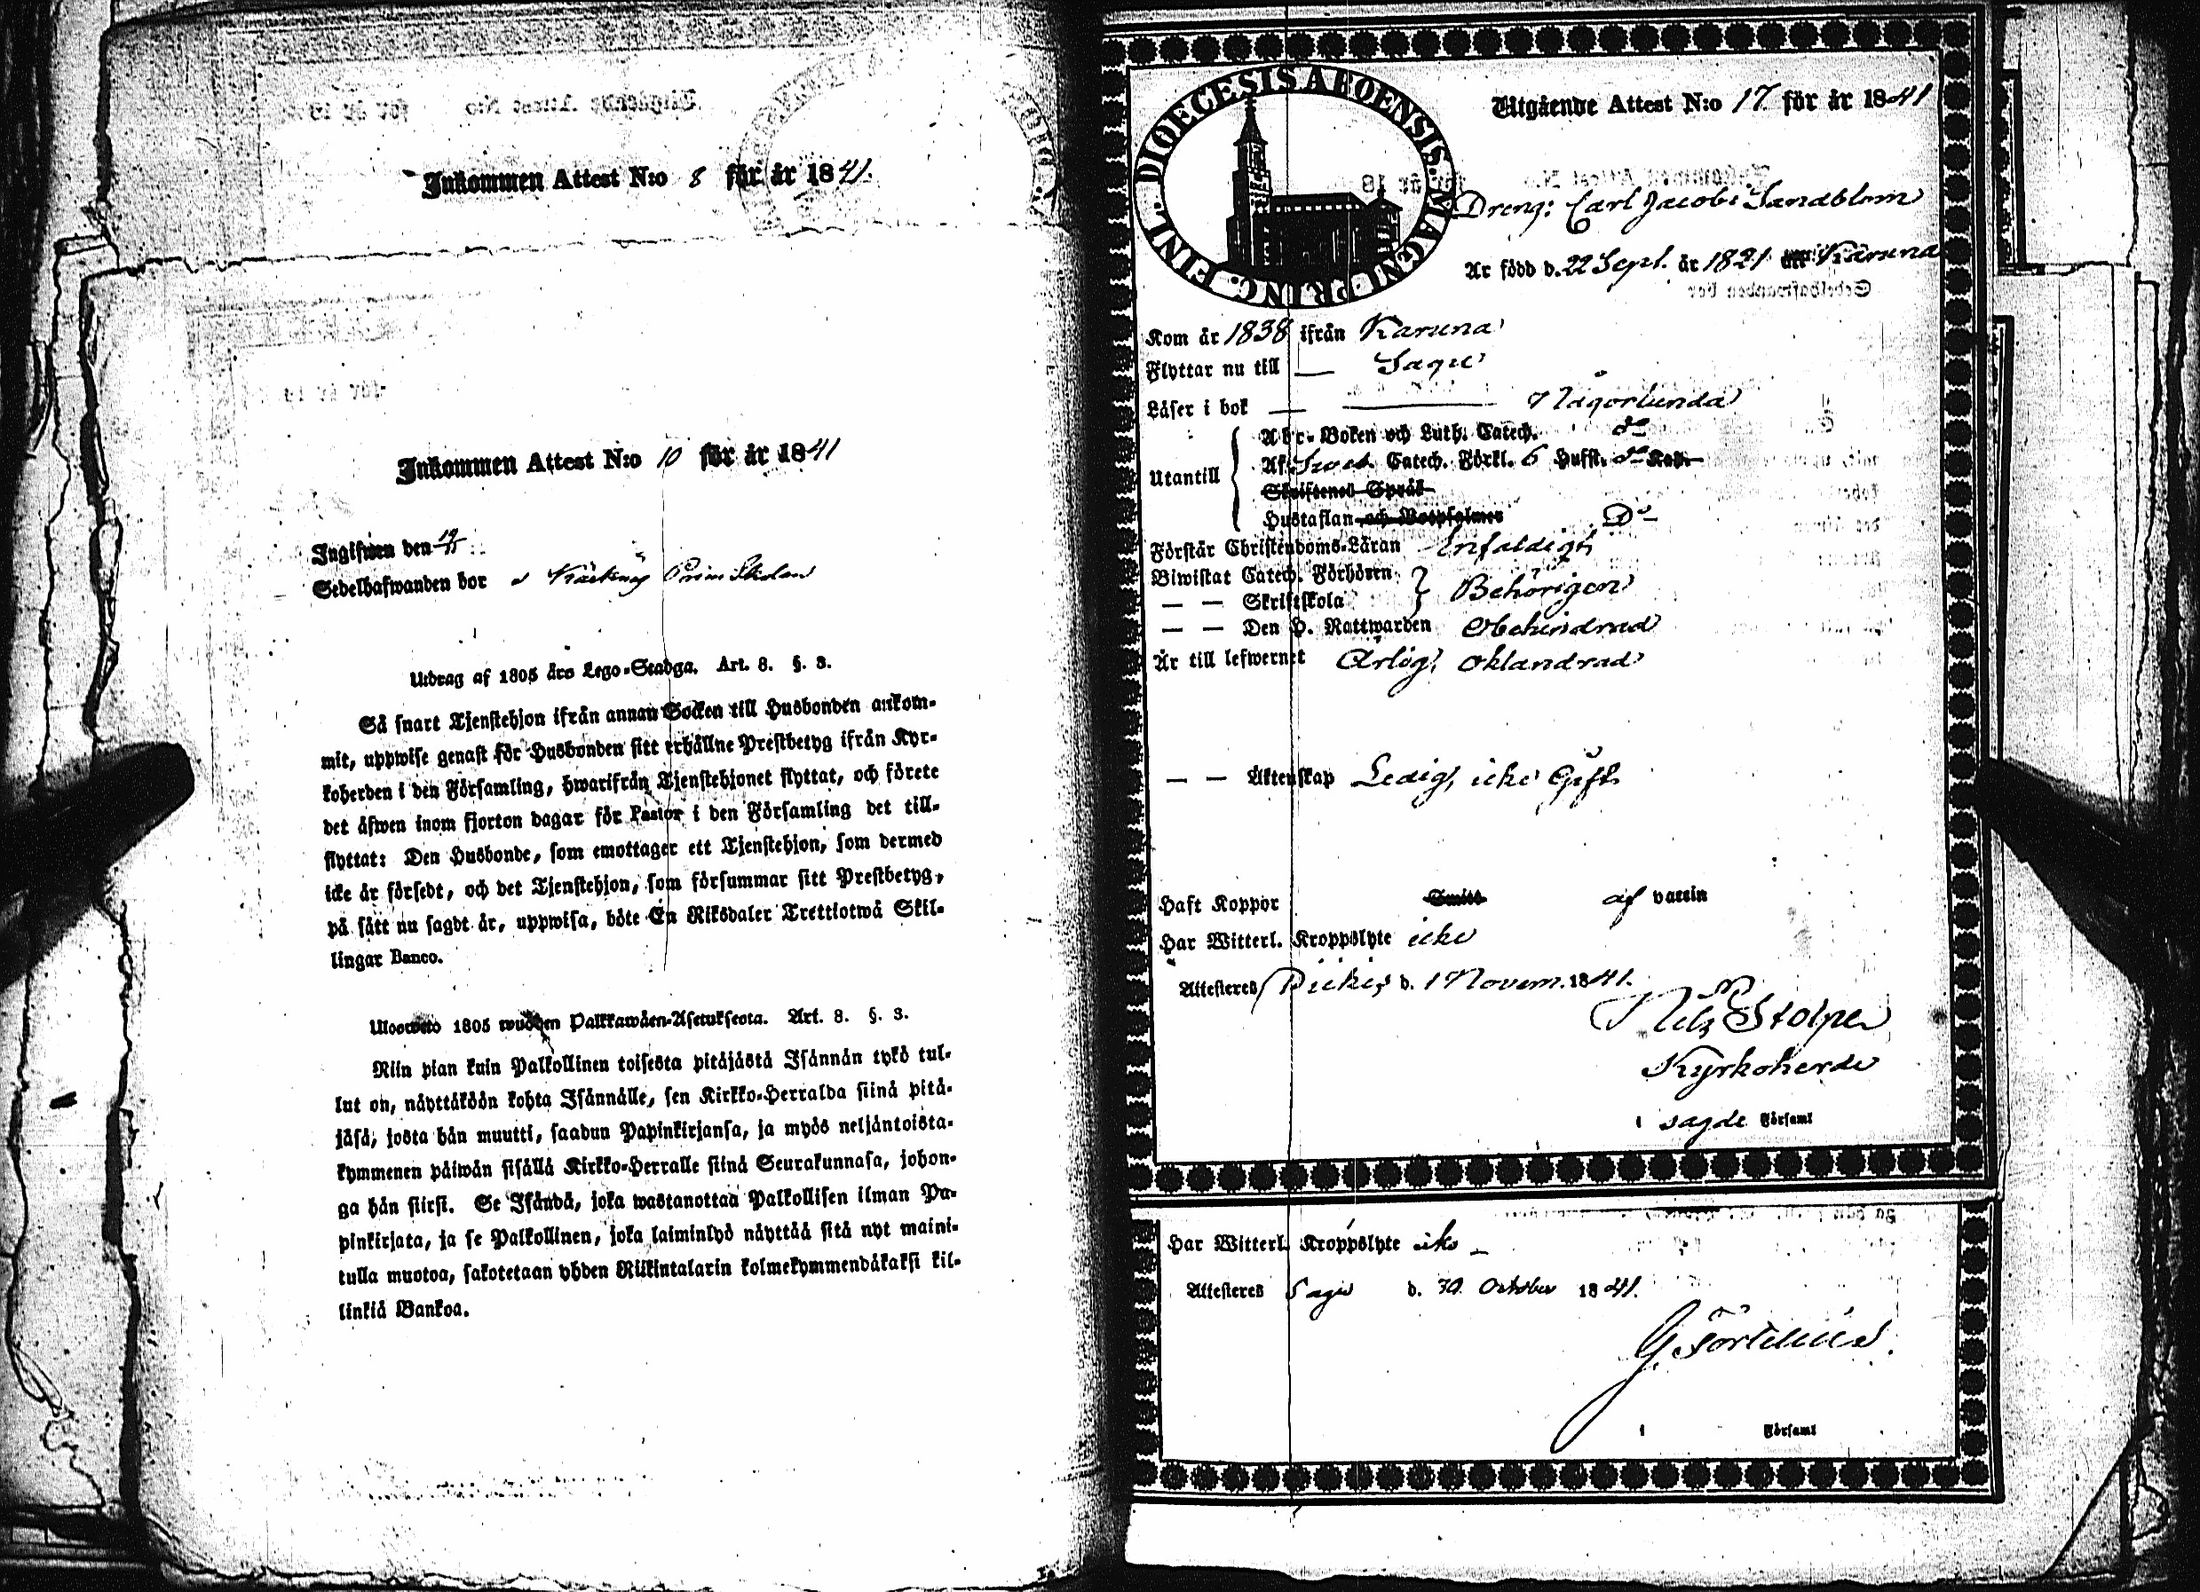 Inkommen Attest N:o 8 för år 1841.
Inkommen Attest N:o 10 för år 1841
Ingifwen den
Sedelhafwanden bor
Utdrag af 1805 års Lego-Stadga. Art. 8. §. 3.
Så snart Tjenstehjon ifrån annan Socken till Husbonden ankom-
mit, uppwise genast för Husbonden sitt erhållne Prestbetyg ifrån Kyr-
koherden i den Församling, hwarifrån Tjenstehjonet flyttat, och förete
det äfwen inom fjorton dagar för Pastor i den Församling det till-
flyttat: Den Husbonde, som emottager ett Tjenstehjon, som dermed
icke är försedt, och det Tjenstehjon, som försummar sitt Prestbetyg,
på sätt nu sagdt är, uppwisa, böte En Riksdaler Trettiotwå Skil-
lingar Banco.
Ulosweto 1805 wuoden Palkkawäen-Asetuksesta. Art. 8. §. 3.
Niin pian kuin Palkollinen toisesta pitäjästä Isännän tykö tul-
lut on, näyttäköön kohta Isännälle, sen Kirkko-Herralda siinä pitä-
jäsä, josta hän muutti, saadun Papinkirjansa, ja myös neljäntoista-
kymmenen päiwän sisällä Kirkko-Herralle siinä Seurakunnasa, johon-
ga hän siirsi. Se Isändä, joka wastanottaa Palkollisen ilman Pa-
pinkirjata, ja se Palkollinen, joka laiminlyö näyttää sitä nyt maini-
tulla muotoa, sakotetaan yhden Riikintalarin kolmekymmendäkaksi kil-
linkiä Bankoa.
DIOECESIS ABOENSIS. MAGNI PRINC. FINL.
Utgående Attest N:o 17. för år 1841
Dreng: Carl Jacob Sandblom
Är född d. 22 Sept. år 1821 uti Karuna
Kom år 1838 ifrån Karuna
Flyttar nu till — Sagu
Läser i bok — Någorlunda
Utantill
Abc-Boken och Luth. Catech. do
Af Sveb. Catech. Förkl. 6 Hufst. do Kap.
Skriftenes Språk
Hustaflan och Botpsalmer Do
Förstår Christendoms-Läran Enfaldigt
Biwistat Catech. Förhören
— — Skriftskola Behörigen
— — Den H. Nattwarden Obehindrad
Är till lefwernet Ärlig, oklandrad
— — Äktenskap Ledig, icke Gift.
Haft Koppor Smitt af vaccin
Har Witterl. Kroppslyte icke
Attesteres Pickis d. 1 Novem. 1841.
Nils Stolpe
Kyrkoherde
i sagde Församl
Har Witterl. Kroppslyte icke —
Attesteres Sagu d. 30 October 1841.
i Församl